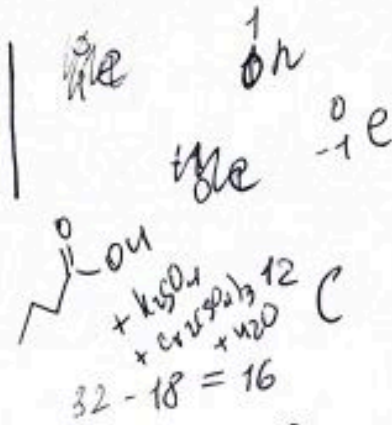 1
0 n
0
-1 e
O
OH
+ K2SO4
+ Cr2(SO4)3
+ H2O
12 C
32 - 18 = 16